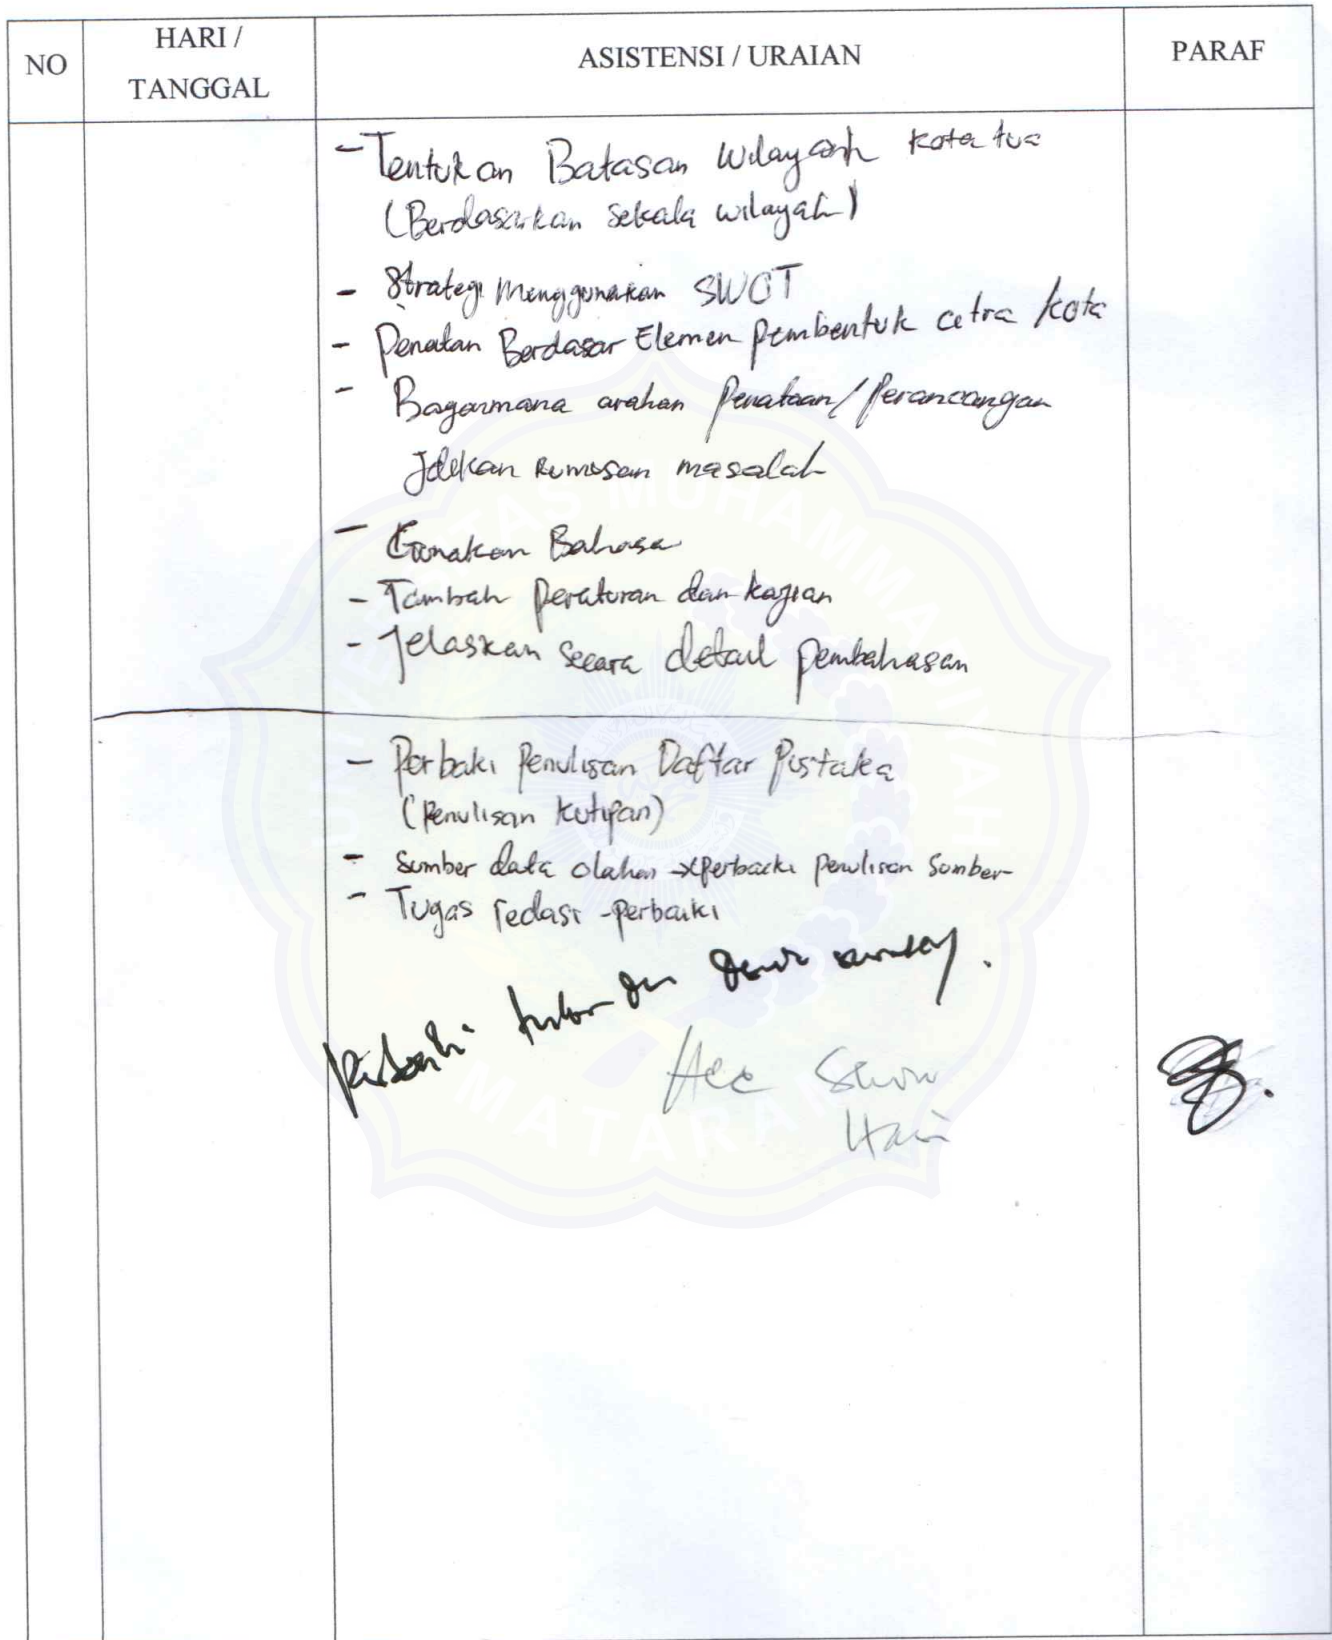 NO
HARI /
TANGGAL
ASISTENSI / URAIAN
PARAF
- Tentukan Batasan Wilayah Kota tua
(Berdasarkan Sekala wilayah)
- Strategi Menggunakan SWOT
- Penatan Berdasar Elemen Pembentuk citra kota
- Bagaimana arahan Penataan/Perancangan
Jdikan Rumusan masalah
- Gunakan Bahasa
- Tambah Peraturan dan kajian
- Jelaskan Secara detail pembahasan
- Perbaki Penulisan Daftar Pustaka
(Penulisan Kutipan)
- Sumber data olahan → Perbaiki penulisan Sumber
- Tugas redasi - Perbaiki
Perbaiki
Acc
MUHAMMADIYAH
MATARAM